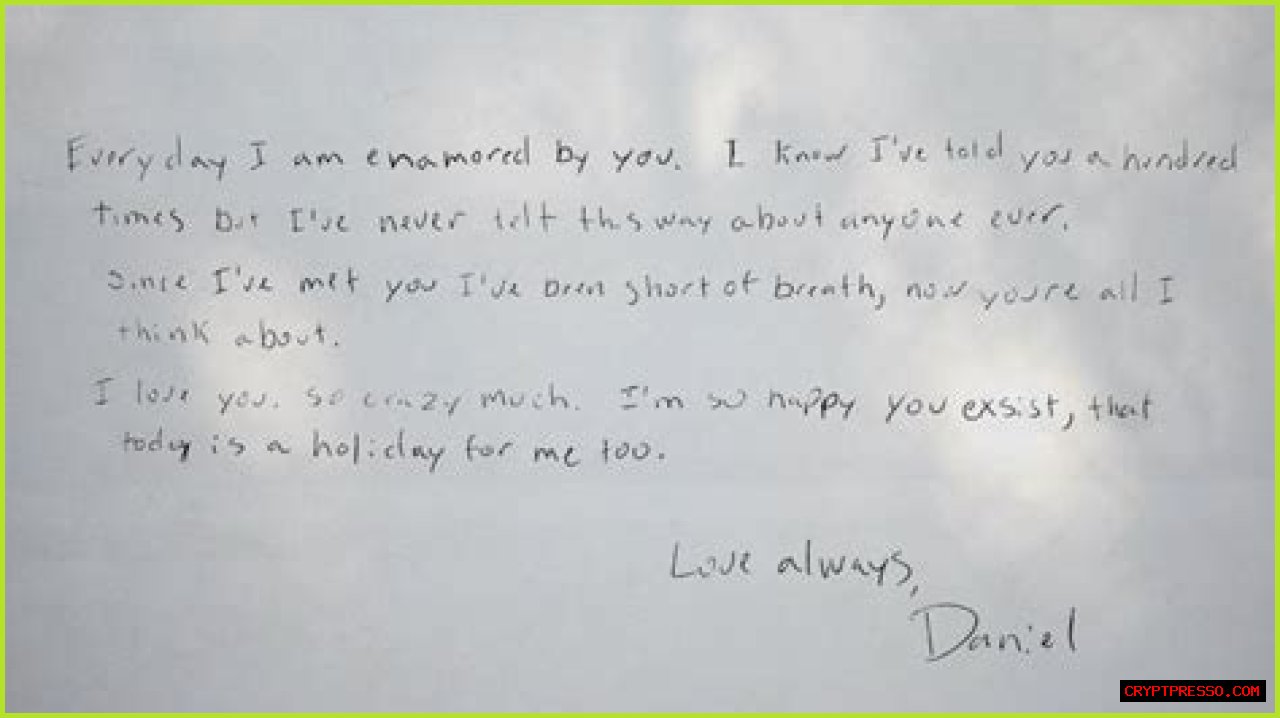 Everyday I am enamored by you. I know I've told you a hundred
times but I've never felt this way about anyone ever.
Since I've met you I've been short of breath, now you're all I
think about.
I love you. so crazy much. I'm so happy you exsist, that
today is a holiday for me too.
Love always,
Daniel
CRYPTPRESSO.COM